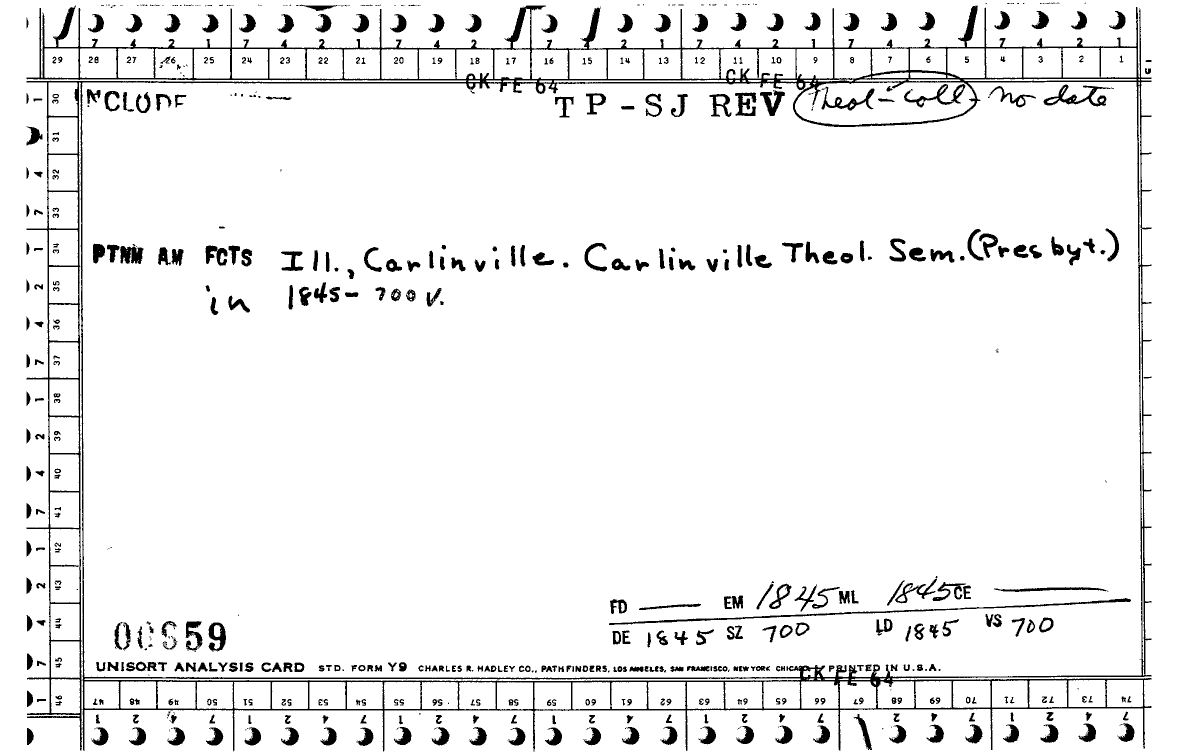 7 4 2 1 7 4 2 1 7 4 2 1 7 2 1 7 4 2 1 7 4 2 7 4 2 1
29 28 27 26 25 24 23 22 21 20 19 18 17 16 15 14 13 12 11 10 9 8 7 6 5 4 3 2 1
CK FE 64 CK FE 64
NCLUDE TP-SJ REV Theol-coll- no date
30
31
32
33
PTNM AM FCTS Ill., Carlinville. Carlinville Theol. Sem. (Presbyt.)
34
in 1845- 700 v.
35
36
37
38
39
40
41
42
43
FD — EM 1845 ML 1845 CE —
44
DE 1845 SZ 700 LD 1845 VS 700
00659
45
UNISORT ANALYSIS CARD STD. FORM Y9 CHARLES R. HADLEY CO., PATHFINDERS, LOS ANGELES, SAN FRANCISCO, NEW YORK CHICAGO PRINTED IN U.S.A.
CK FE 64
46
47 48 49 50 51 52 53 54 55 56 57 58 59 60 61 62 63 64 65 66 67 68 69 70 71 72 73 74
1 2 4 7 1 2 4 7 1 2 4 7 1 2 4 7 1 2 4 7 2 4 7 1 2 4 7